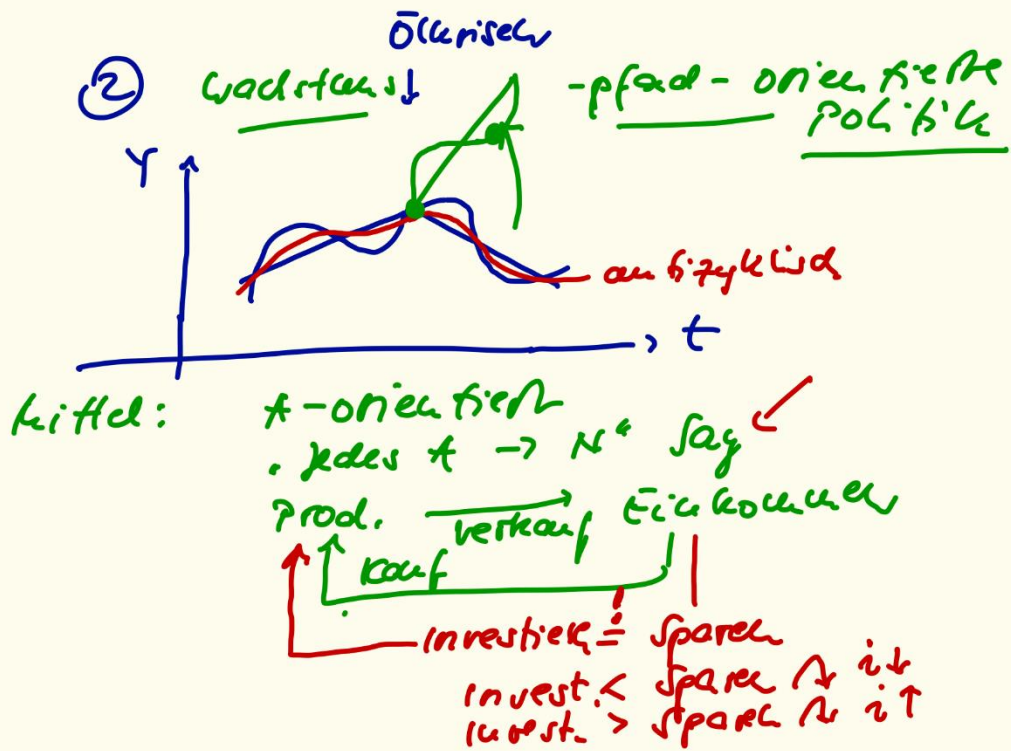 Ölkrisen
② Wachstums ↓ -pfad-orientierte
Politik
Y
antizyklisch
t
Mittel: A-orientiert
"jedes A → N" Say
Prod. Verkauf Einkommen
Kauf
investieren = Sparen
invest. < Sparen i↓
invest. > Sparen i↑